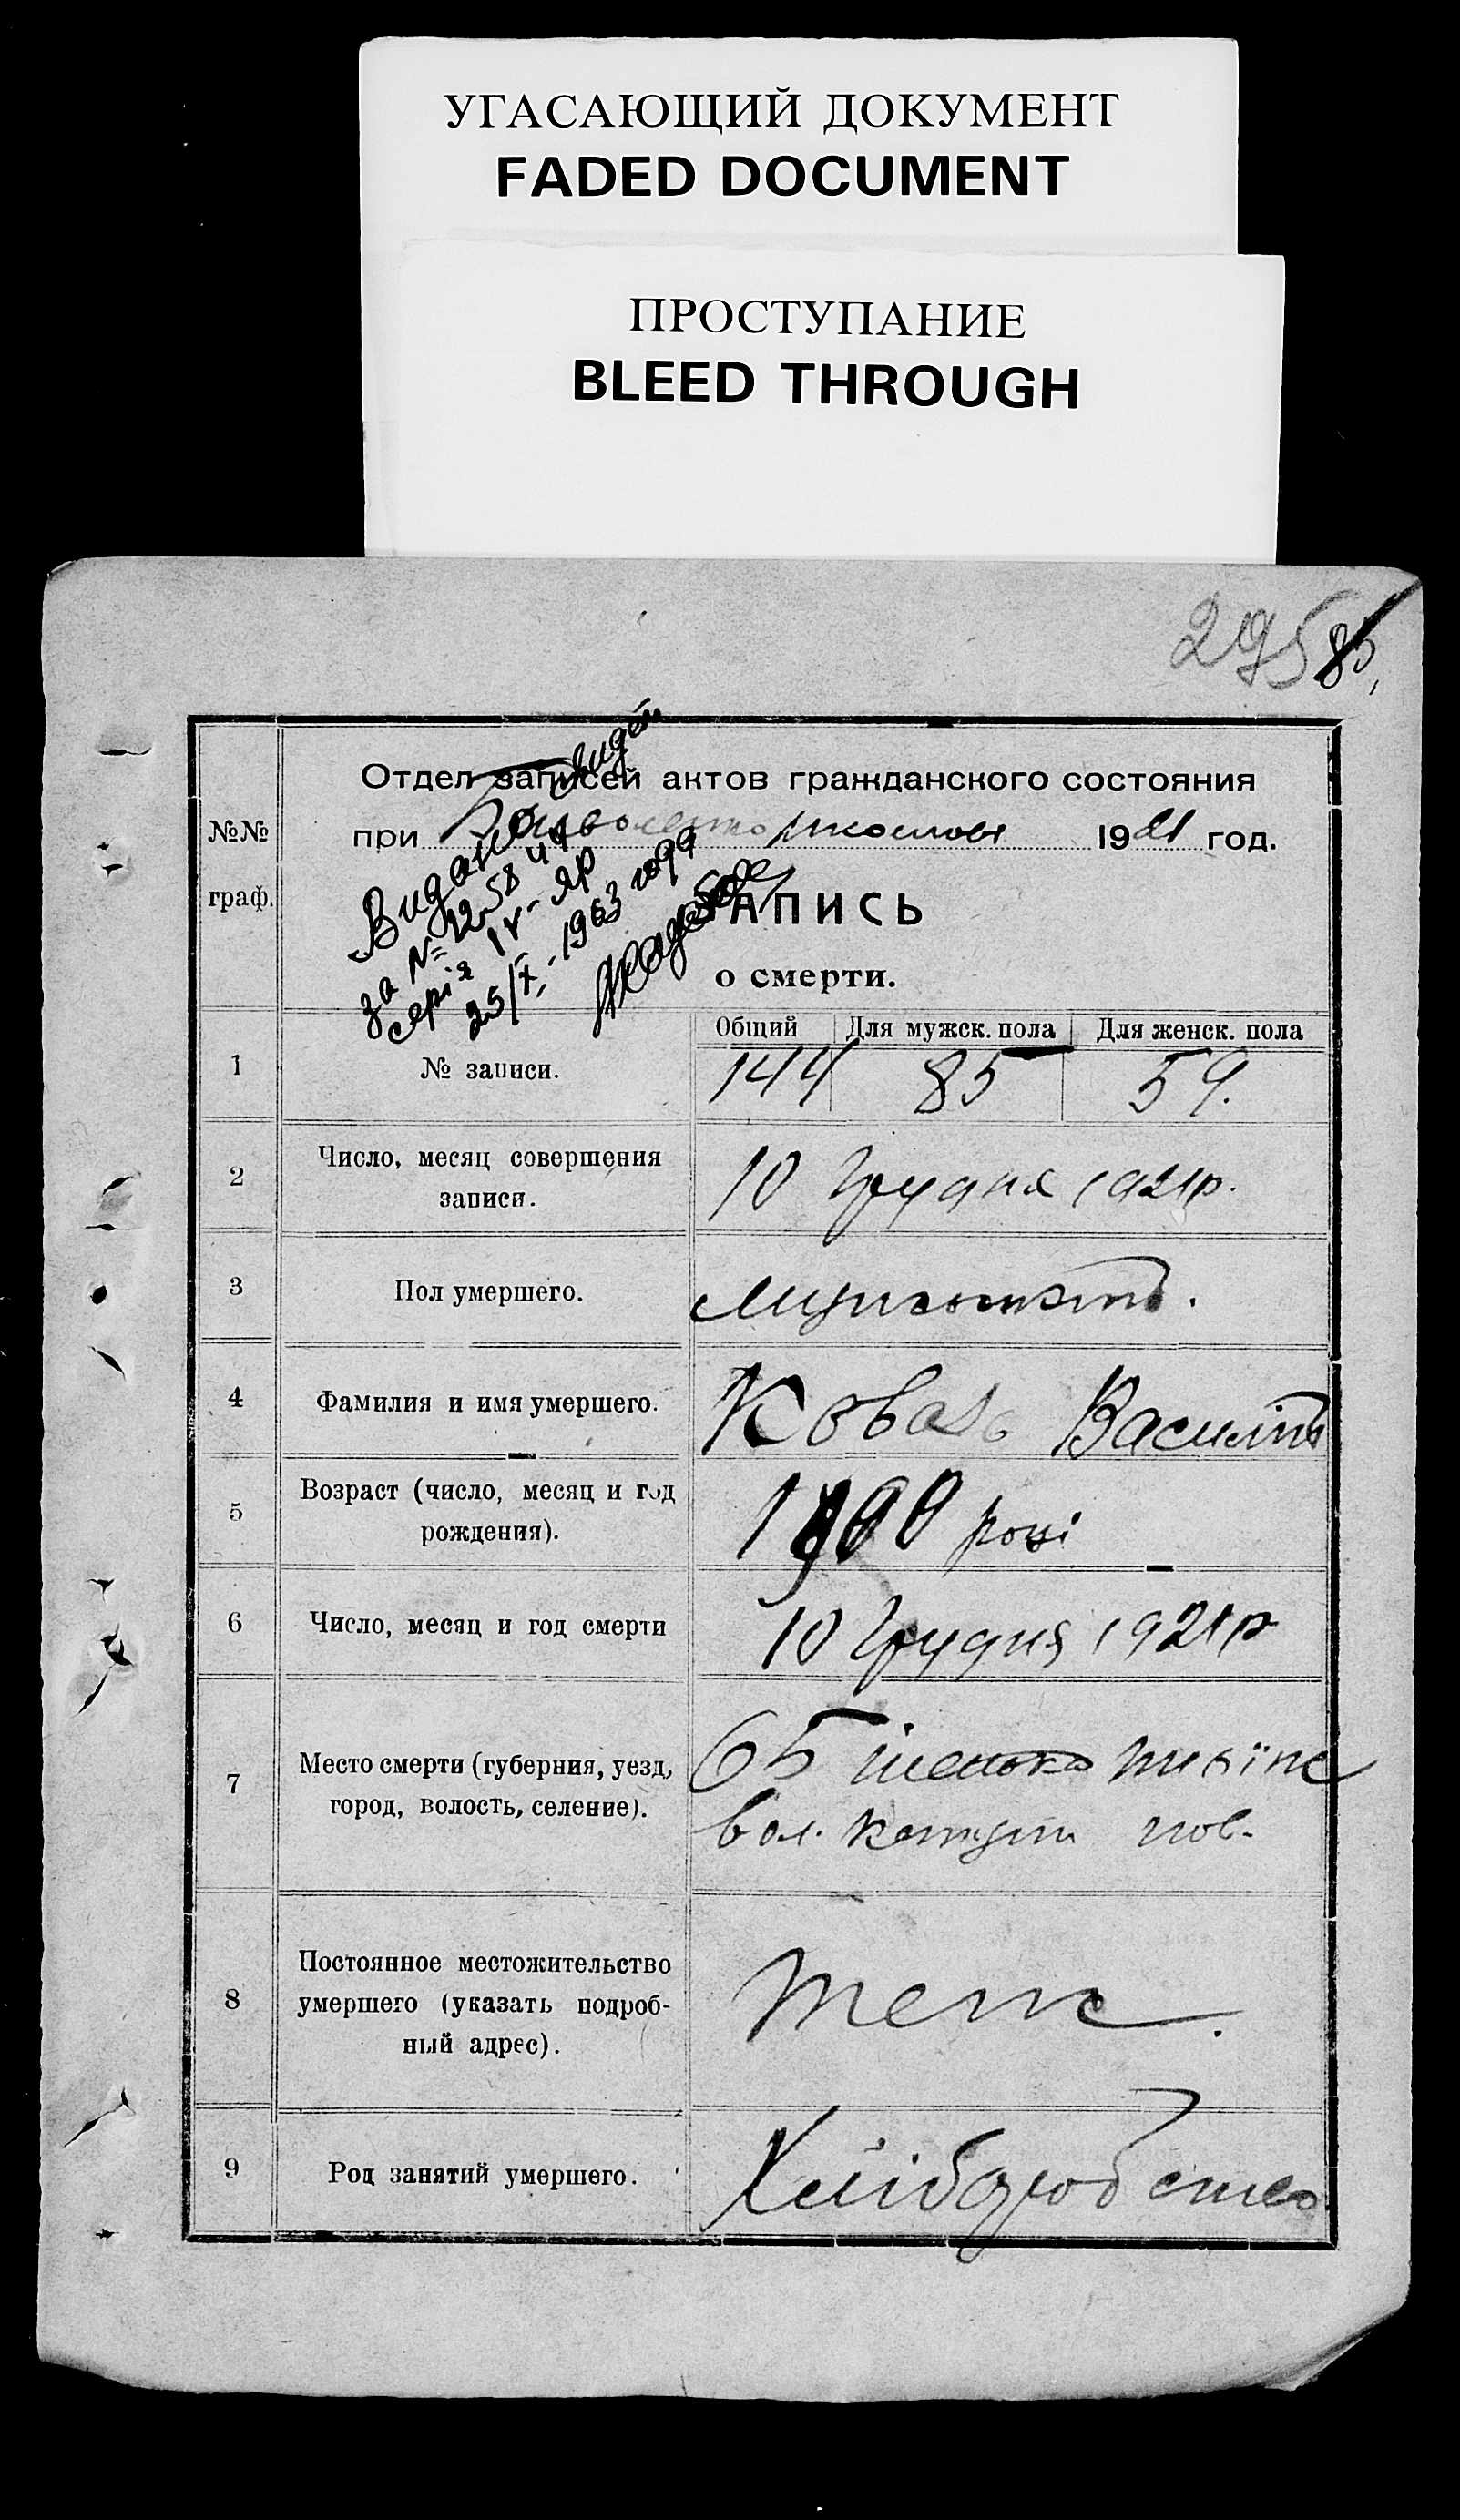 УГАСАЮЩИЙ ДОКУМЕНТ
FADED DOCUMENT
ПРОСТУПАНИЕ
BLEED THROUGH
295 85
№№ граф.
Отдел записей актов гражданского состояния
при 1921 год.
ЗАПИСЬ
о смерти.
Видано
за № 225844
серія IV-ЯР
25/X-1963 года
Общий Для мужск. пола Для женск. пола
1 № записи. 144 85 59.
2 Число, месяц совершения записи. 10 Грудня 1921р.
3 Пол умершего.
4 Фамилия и имя умершего. Коваль Василь
5 Возраст (число, месяц и год рождения). 1900 році
6 Число, месяц и год смерти 10 Грудня 1921р
7 Место смерти (губерния, уезд, город, волость, селение).
вол. пов.
8 Постоянное местожительство умершего (указать подроб-
ный адрес). теж.
9 Род занятий умершего. Хліборобство